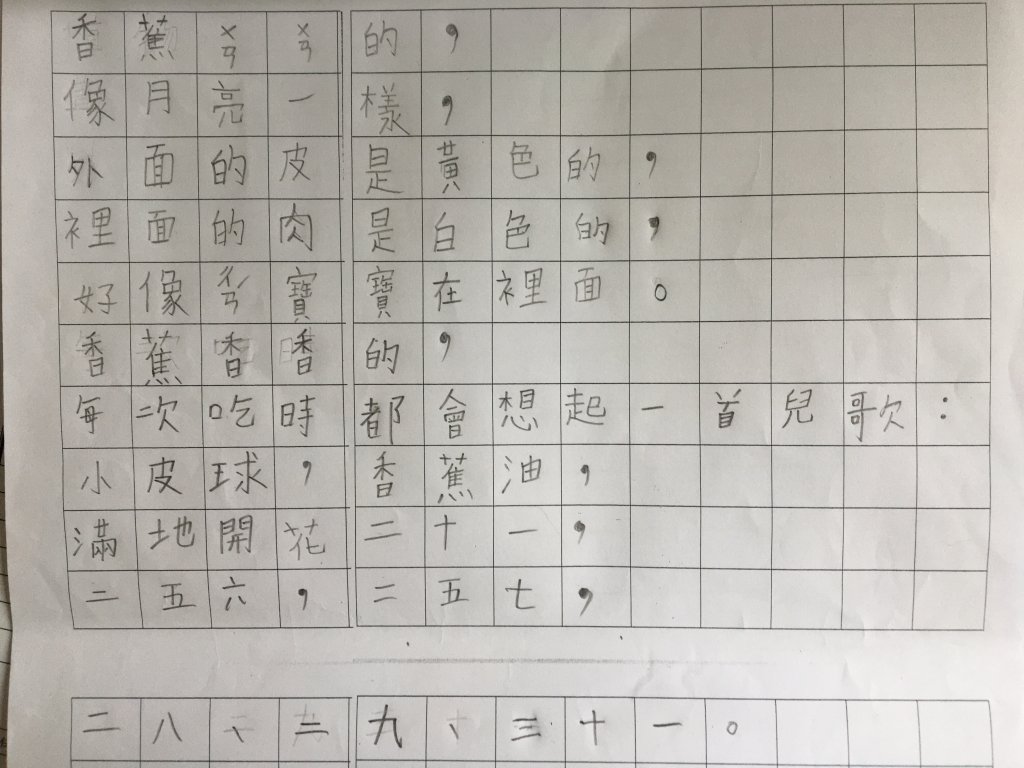 香蕉ㄨㄢㄨㄢ的，
像月亮一樣，
外面的皮是黃色的，
裡面的肉是白色的，
好像ㄔㄢ寶寶在裡面。
香蕉香香的，
每次吃時都會想起一首兒歌：
小皮球，香蕉油，
滿地開花二十一，
二五六，二五七，
二八、二九、三十一。